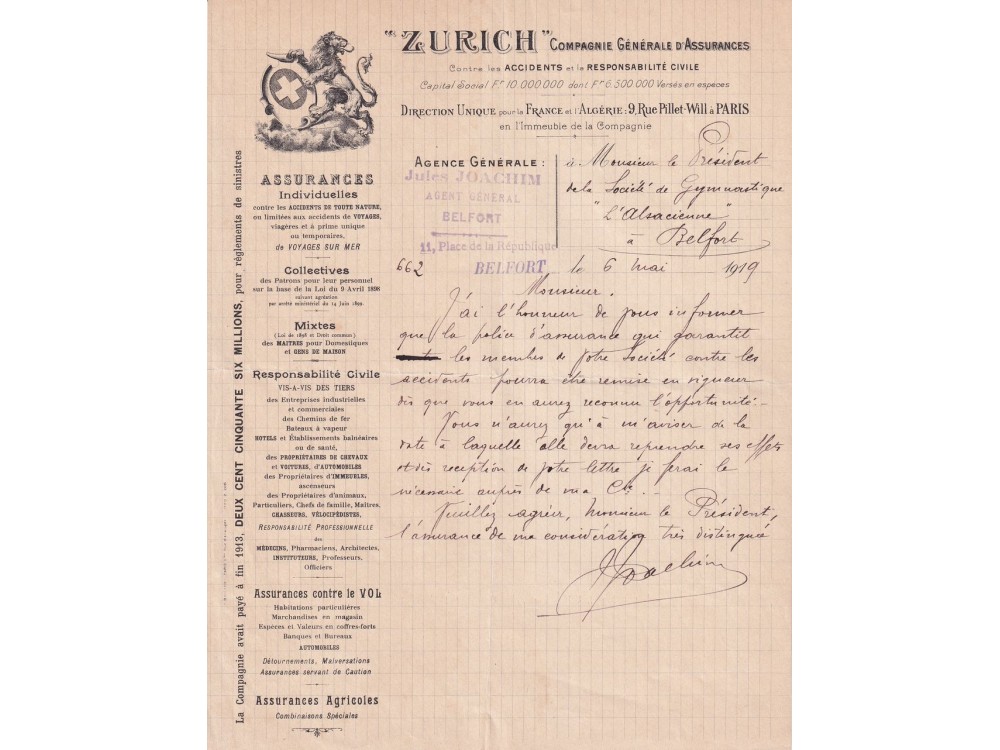 "ZURICH" COMPAGNIE GÉNÉRALE D'ASSURANCES
Contre les ACCIDENTS et la RESPONSABILITÉ CIVILE
Capital Social Frs 10.000.000 dont Frs 6.500.000 Versés en espèces
DIRECTION UNIQUE pour la FRANCE et l'ALGÉRIE: 9, Rue Pillet-Will à PARIS
en l'Immeuble de la Compagnie
AGENCE GÉNÉRALE:
Jules JOACHIM
AGENT GÉNÉRAL
BELFORT
11, Place de la République
BELFORT
à Monsieur le Président
de la Société de Gymnastique
"L'Alsacienne"
à Belfort
662
le 6 mai 1919
Monsieur.
J'ai l'honneur de vous informer
que la police d'assurance qui garantit
les membres de votre Société contre les
accidents pourra être remise en vigueur
dès que vous en aurez reconnu l'opportunité.
Vous n'aurez qu'à m'aviser de la
date à laquelle elle devra reprendre ses effets
et dès réception de votre lettre je ferai le
nécessaire auprès de ma Cie.
Veuillez agréer, Monsieur le Président,
l'assurance de ma considération très distinguée
JJoachim
ASSURANCES
Individuelles
contre les ACCIDENTS DE TOUTE NATURE,
ou limitées aux accidents de VOYAGES,
viagères et à prime unique
ou temporaires,
de VOYAGES SUR MER
Collectives
des Patrons pour leur personnel
sur la base de la Loi du 9 Avril 1898
suivant agréation
par arrêté ministériel du 14 Juin 1899.
Mixtes
(Loi de 1898 et Droit commun)
des MAITRES pour Domestiques
et GENS DE MAISON
Responsabilité Civile
VIS-A-VIS DES TIERS
des Entreprises industrielles
et commerciales
des Chemins de fer
Bateaux à vapeur
HOTELS et Établissements balnéaires
ou de santé,
des PROPRIÉTAIRES DE CHEVAUX
et VOITURES, d'AUTOMOBILES
des Propriétaires d'IMMEUBLES,
ascenseurs
des Propriétaires d'animaux,
Particuliers, Chefs de famille, Maîtres,
CHASSEURS, VÉLOCIPÉDISTES,
RESPONSABILITÉ PROFESSIONNELLE
des
MÉDECINS, Pharmaciens, Architectes,
INSTITUTEURS, Professeurs,
Officiers
Assurances contre le VOL
Habitations particulières
Marchandises en magasin
Espèces et Valeurs en coffres-forts
Banques et Bureaux
AUTOMOBILES
Détournements, Malversations
Assurances servant de Caution
Assurances Agricoles
Combinaisons Spéciales
La Compagnie avait payé à fin 1913, DEUX CENT CINQUANTE SIX MILLIONS, pour règlements de sinistres